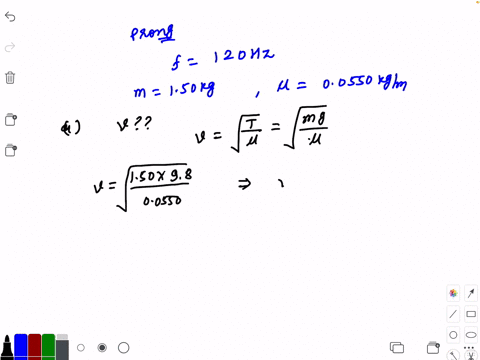 prong
f = 120 Hz
m = 1.50 kg , μ = 0.0550 kg/m
v?? v = √(T/μ) = √(mg/μ)
v = √(1.50 × 9.8 / 0.0550) ⇒